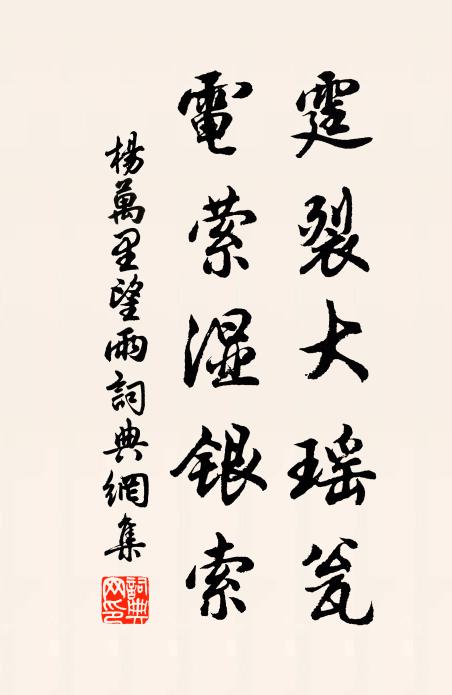 霆裂大瑶瓮
電萦湿銀索
楊萬里望雨詞典網集
詞典网印